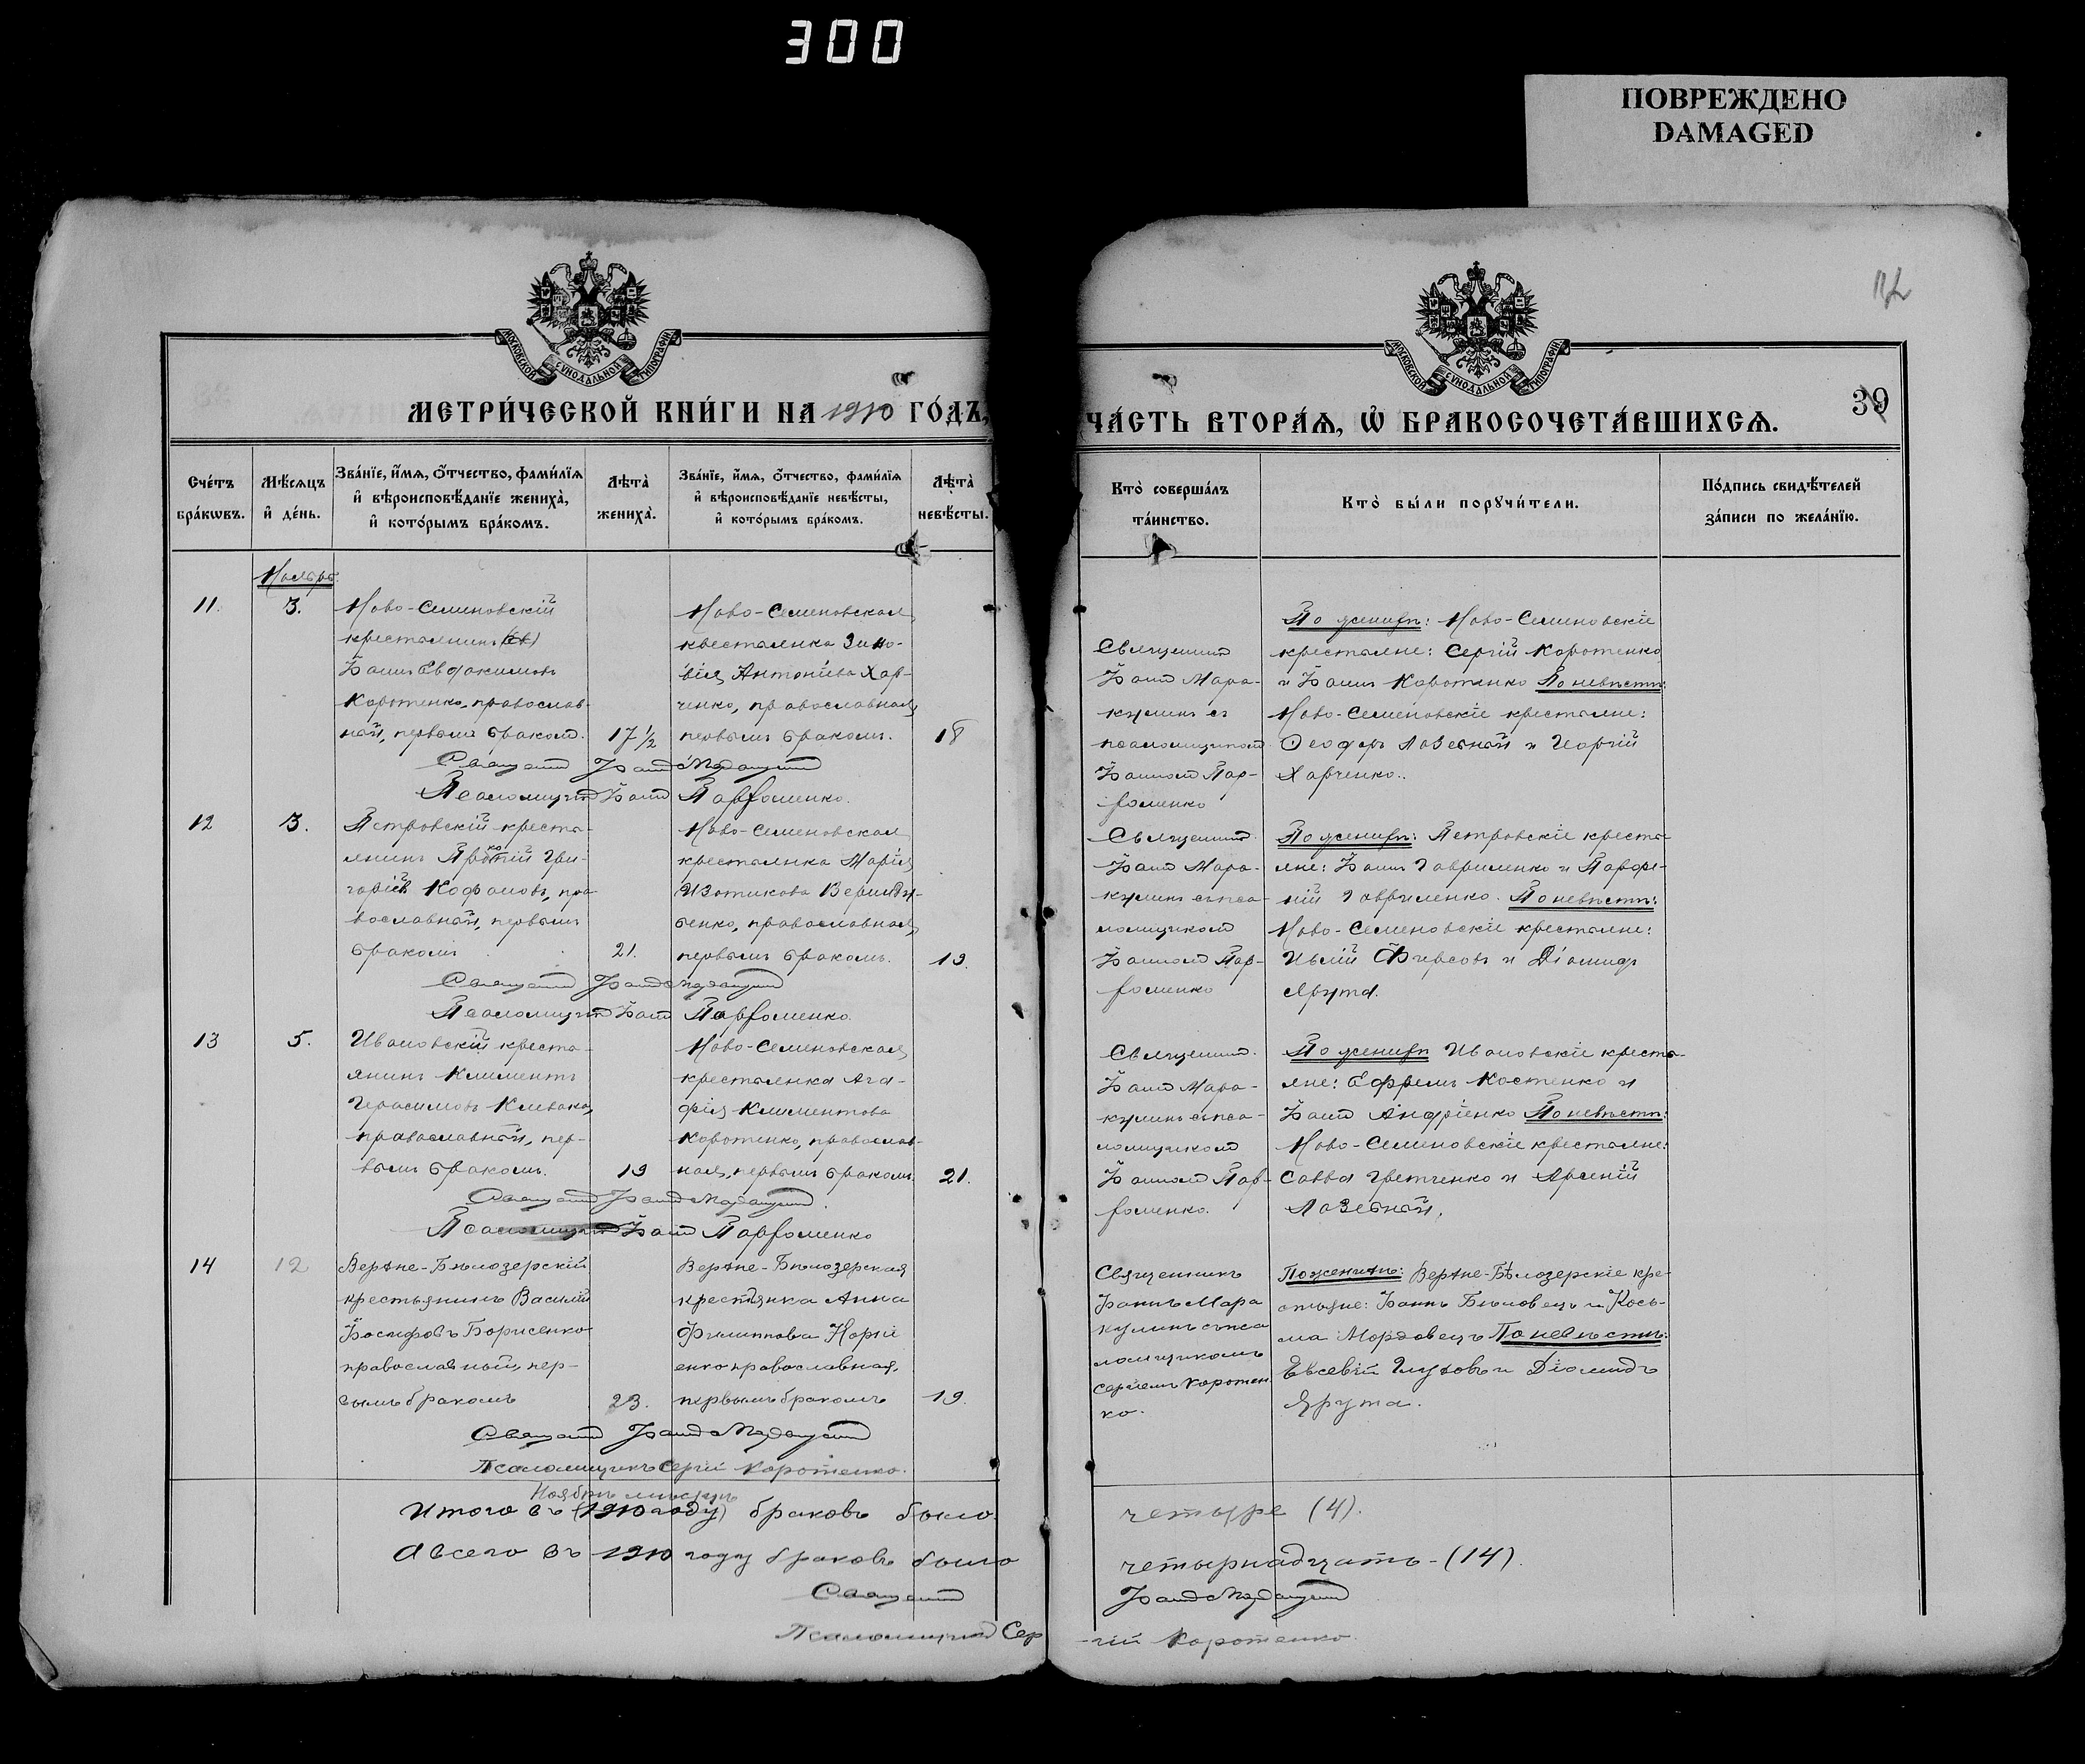 300
ПОВРЕЖДЕНО
DAMAGED
МОСКОВСКОЙ СУНОДАЛЬНОЙ ТИПОГРАФІИ
МОСКОВСКОЙ СУНОДАЛЬНОЙ ТИПОГРАФІИ
39
МЕТРИ́ЧЕСКОЙ КНИ́ГИ НА 1910 ГО́ДЪ,
ЧА́СТЬ ВТОРА́Ѧ, Ѡ҆ БРАКОСОЧЕТА́ВШИХСѦ.
Сче́тъ бра́кѡвъ.
Мѣ́сѧцъ и҆ де́нь.
Зва́нїе, и҆́мѧ, ѻ҆́тчество, фами́лїѧ и҆ вѣроисповѣ́данїе жениха̀, и҆ кото́рымъ бра́комъ.
Лѣта̀ жениха̀.
Зва́нїе, и҆́мѧ, ѻ҆́тчество, фами́лїѧ и҆ вѣроисповѣ́данїе невѣ́сты, и҆ кото́рымъ бра́комъ.
Лѣта̀ невѣ́сты.
Кто̀ соверша́лъ та́инство.
Кто̀ бы́ли порꙋчи́тели.
По́дпись свидѣ́телей за́писи по жела́нїю.
Ноябрь.
11.
3.
Ново-Семеновскій
крестьянинъ
Іоаннъ Евдокимовъ
Коротенко, православ-
ный, первымъ бракомъ.
17 1/2
Ново-Семеновская
крестьянка Зино-
вія Антоніева Хар-
ченко, православная,
первымъ бракомъ.
18
Священник
Іоанн Мара-
кулинъ съ
псаломщиком
Іоанном Пар-
фоменко
По женихѣ: Ново-Семеновскіе
крестьяне: Сергій Коротенко
и Іоаннъ Коротенко По невѣстѣ:
Ново-Семеновскіе крестьяне:
Ѳеодоръ Лазебный и Георгій
Харченко.
Священник Іоанн Маракулин
Псаломщик Іоанн Парфоменко.
12
3.
Петровскій кресть-
янинъ Прокопій Гри-
горіев Кофановъ, пра-
вославный, первымъ
бракомъ
21.
Ново-Семеновская
крестьянка Марія
Изотикова
бенко, православная,
первымъ бракомъ.
19.
Священник
Іоанн Мара-
кулинъ съ пса-
ломщиком
Іоанном Пар-
фоменко
По женихѣ: Петровскіе кресть-
яне: Іоаннъ Гавриленко и Парфе-
ній Гавриленко. По невѣстѣ:
Ново-Семеновскіе крестьяне:
Илій Фирсовъ и Діомидъ
Ярута.
Священник Іоанн Маракулин
Псаломщик Іоанн Парфоменко.
13
5.
Ивановскій кресть-
янинъ Климентъ
Герасимовъ Кливака,
православный, пер-
вымъ бракомъ.
19
Ново-Семеновская
крестьянка Ага-
фія Климентова
Коротенко, православ-
ная, первымъ бракомъ.
21.
Священник.
Іоанн Мара-
кулинъ съ пса-
ломщиком
Іоанном Пар-
фоменко.
По женихѣ Ивановскіе кресть-
яне: Ефремъ Костенко и
Іоанн Андріенко По невѣстѣ:
Ново-Семеновскіе крестьяне:
Савва Гретченко и Арсеній
Лазебный.
Священник Іоанн Маракулин.
Псаломщик Іоанн Парфоменко
14
12
Верхне-Бѣлозерскій
крестьянинъ Василій
Іосифовъ Борисенко
православный, пер-
вымъ бракомъ
23.
Верхне-Бѣлозерская
крестьянка Анна
Филиппова Корні
енко православная,
первымъ бракомъ
19.
Священникъ
Іоаннъ Мара
кулинъ съ пса
ломщикомъ
Сергіемъ Коротен
ко.
По женихѣ: Верхне-Бѣлозерскіе кре-
стьяне: Іоаннъ Бѣловецъ и Кось-
ма Мордовецъ По невѣстѣ:
Евсевій Глуховъ и Діомидъ
Ярута.
Священник Іоанн Маракулин
Псаломщикъ Сергій Коротенко.
Ноябрѣ мѣсяцѣ
Итого въ (1910 году) браковъ было четыре (4).
А всего въ 1910 году браковъ было четырнадцать - (14).
Священник Іоанн Маракулин
Псаломщик Сергій Коротенко.